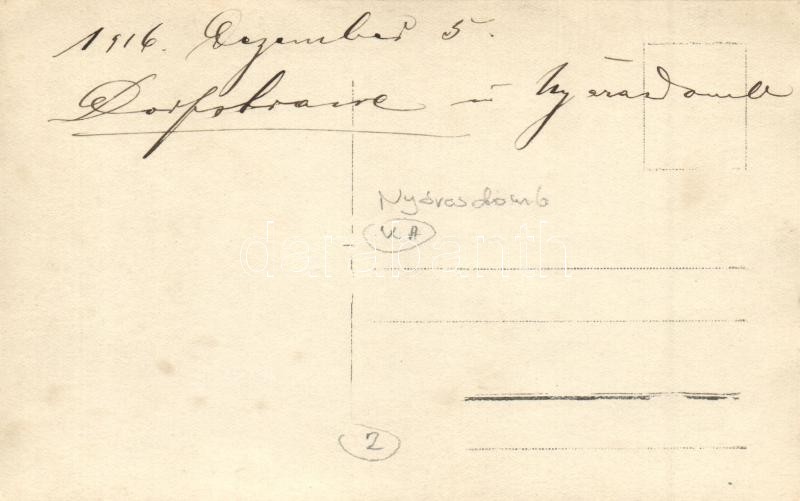 1916. Dezember 5.
Dorfstrasse in Nyárasdomb
Nyárasdomb
K A
darabanth
2